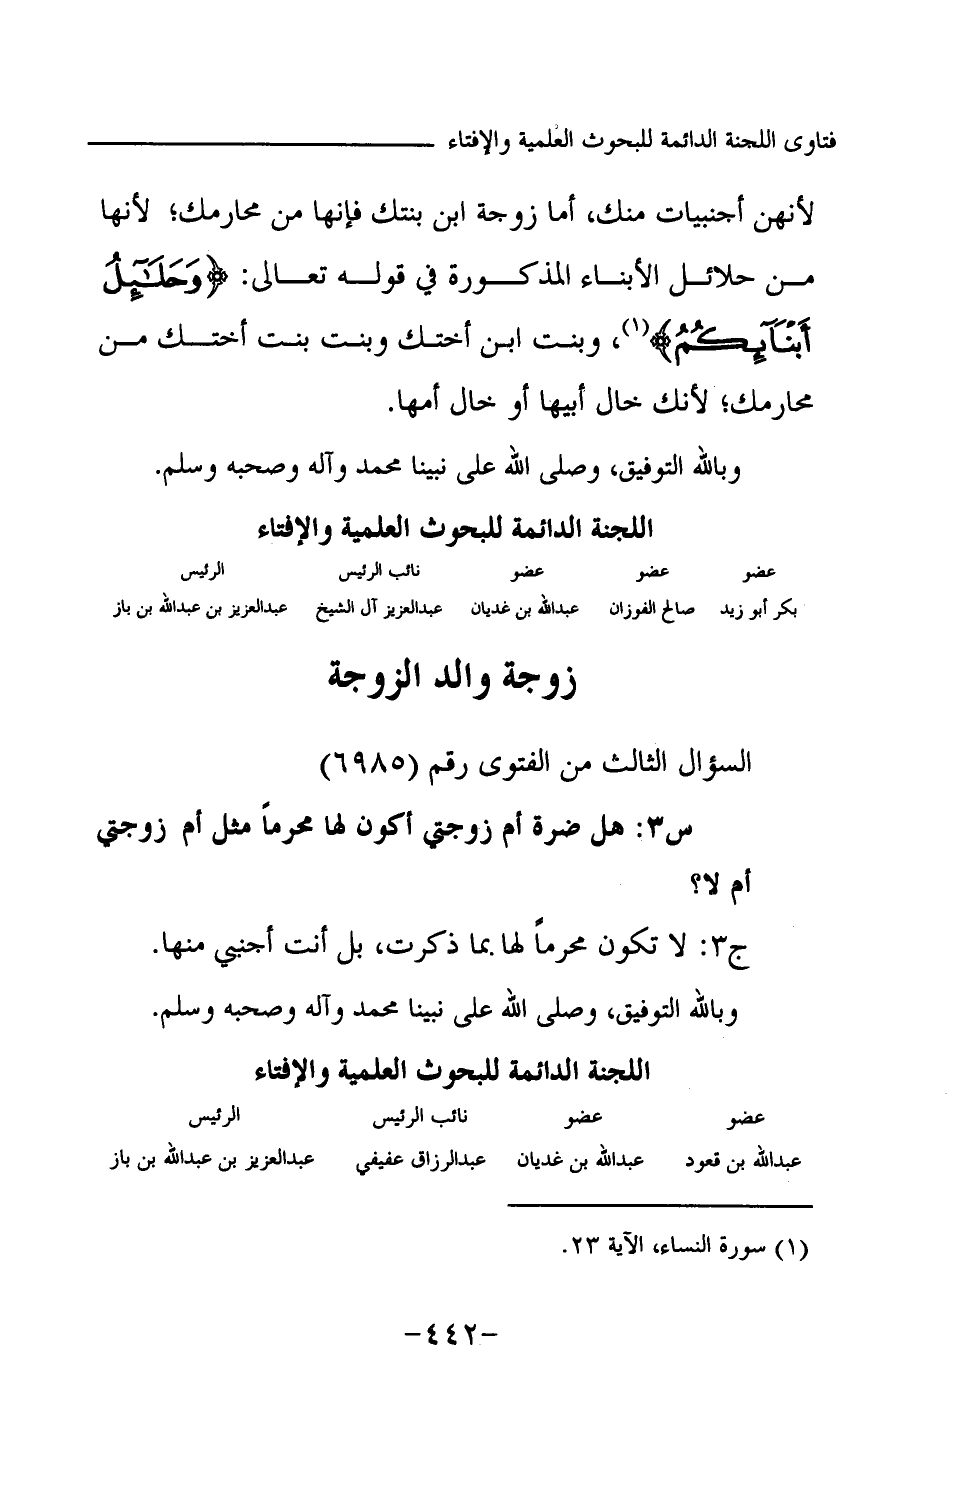 فتاوى اللجنة الدائمة للبحوث العلمية والإفتاء
لأنهن أجنبيات منك، أما زوجة ابن بنتك فإنها من محارمك؛ لأنها
من حلائل الأبناء المذكورة في قوله تعالى: ﴿وَحَلَٰٓئِلُ
أَبْنَآئِكُمُ﴾(١)، وبنت ابن أختك وبنت بنت أختك من
محارمك؛ لأنك خال أبيها أو خال أمها.
وبالله التوفيق، وصلى الله على نبينا محمد وآله وصحبه وسلم.
اللجنة الدائمة للبحوث العلمية والإفتاء
عضو عضو عضو نائب الرئيس الرئيس
بكر أبو زيد صالح الفوزان عبدالله بن غديان عبدالعزيز آل الشيخ عبدالعزيز بن عبدالله بن باز
زوجة والد الزوجة
السؤال الثالث من الفتوى رقم (٦٩٨٥)
س٣: هل ضرة أم زوجتي أكون لها محرماً مثل أم زوجتي
أم لا؟
ج٣: لا تكون محرماً لها بما ذكرت، بل أنت أجنبي منها.
وبالله التوفيق، وصلى الله على نبينا محمد وآله وصحبه وسلم.
اللجنة الدائمة للبحوث العلمية والإفتاء
عضو عضو نائب الرئيس الرئيس
عبدالله بن قعود عبدالله بن غديان عبدالرزاق عفيفي عبدالعزيز بن عبدالله بن باز
(١) سورة النساء، الآية ٢٣.
-٤٤٢-